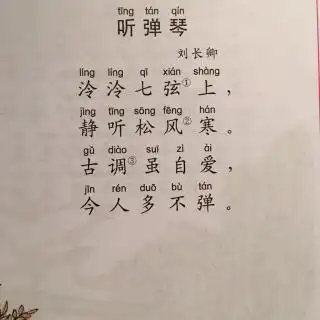 tīng tán qín
听弹琴
刘长卿
líng líng qī xián shàng
泠泠七弦①上，
jìng tīng sōng fēng hán
静听松风②寒。
gǔ diào suī zì ài
古调③虽自爱，
jīn rén duō bù tán
今人多不弹。